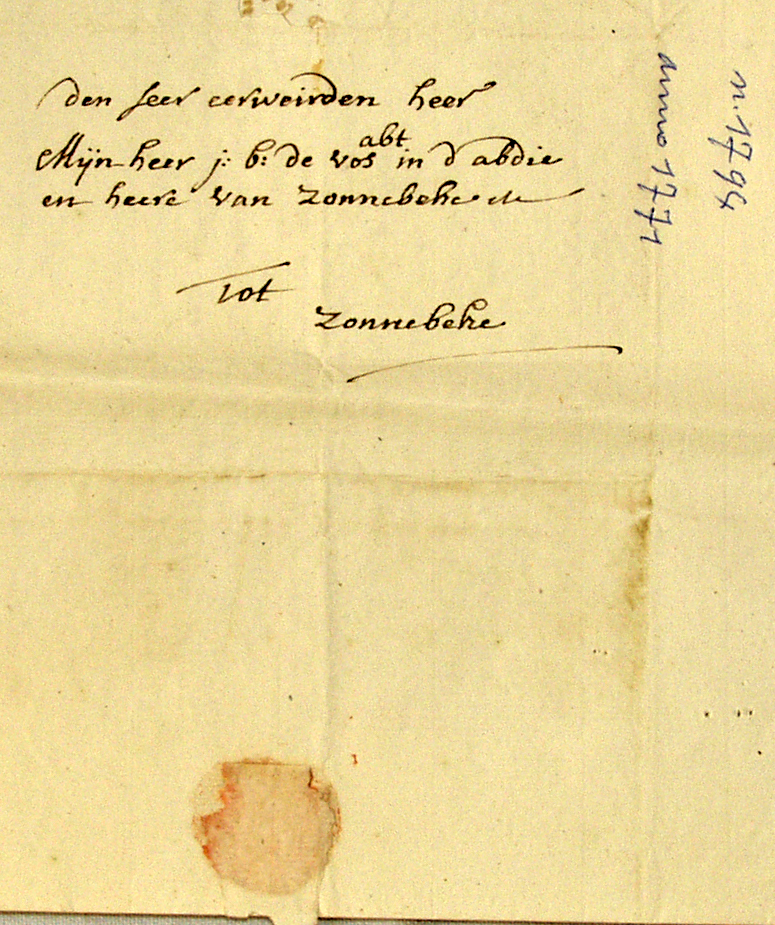 den seer eerweirden heer
Mijn heer j: b: de vos abt in d'abdie
en heere van zonnebeke etc
Tot
zonnebeke
anno 1771
n. 1794